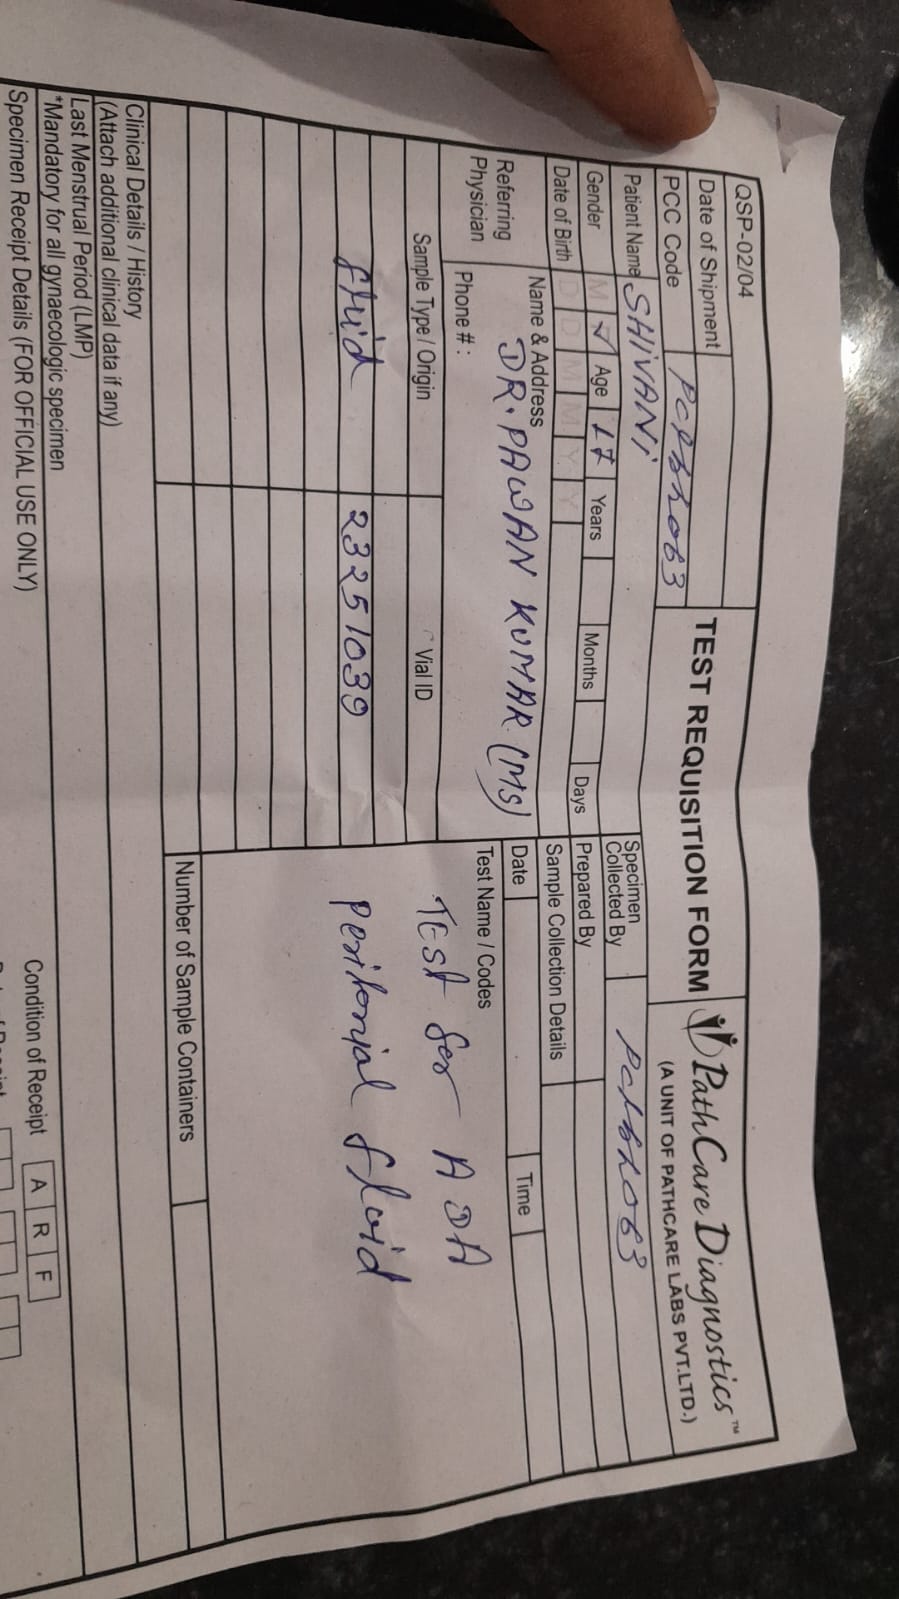 QSP-02/04
Date of Shipment
PCC Code
TEST REQUISITION FORM
PathCare Diagnostics™
(A UNIT OF PATHCARE LABS PVT.LTD.)
Patient Name SHIVANi
Specimen Collected By
Gender M ✓ Age 17 Years Months Days
Prepared By
Date of Birth D D M M Y Y
Sample Collection Details
Referring Physician
Name & Address
DR. PAWAN KUMAR (MS)
Phone # :
Date Time
Sample Type / Origin Vial ID
Test Name / Codes
fluid 23251039
Test for ADA
Peritonial fluid
Number of Sample Containers
Clinical Details / History
(Attach additional clinical data if any)
Last Menstrual Period (LMP)
*Mandatory for all gynaecologic specimen
Specimen Receipt Details (FOR OFFICIAL USE ONLY)
Condition of Receipt A R F